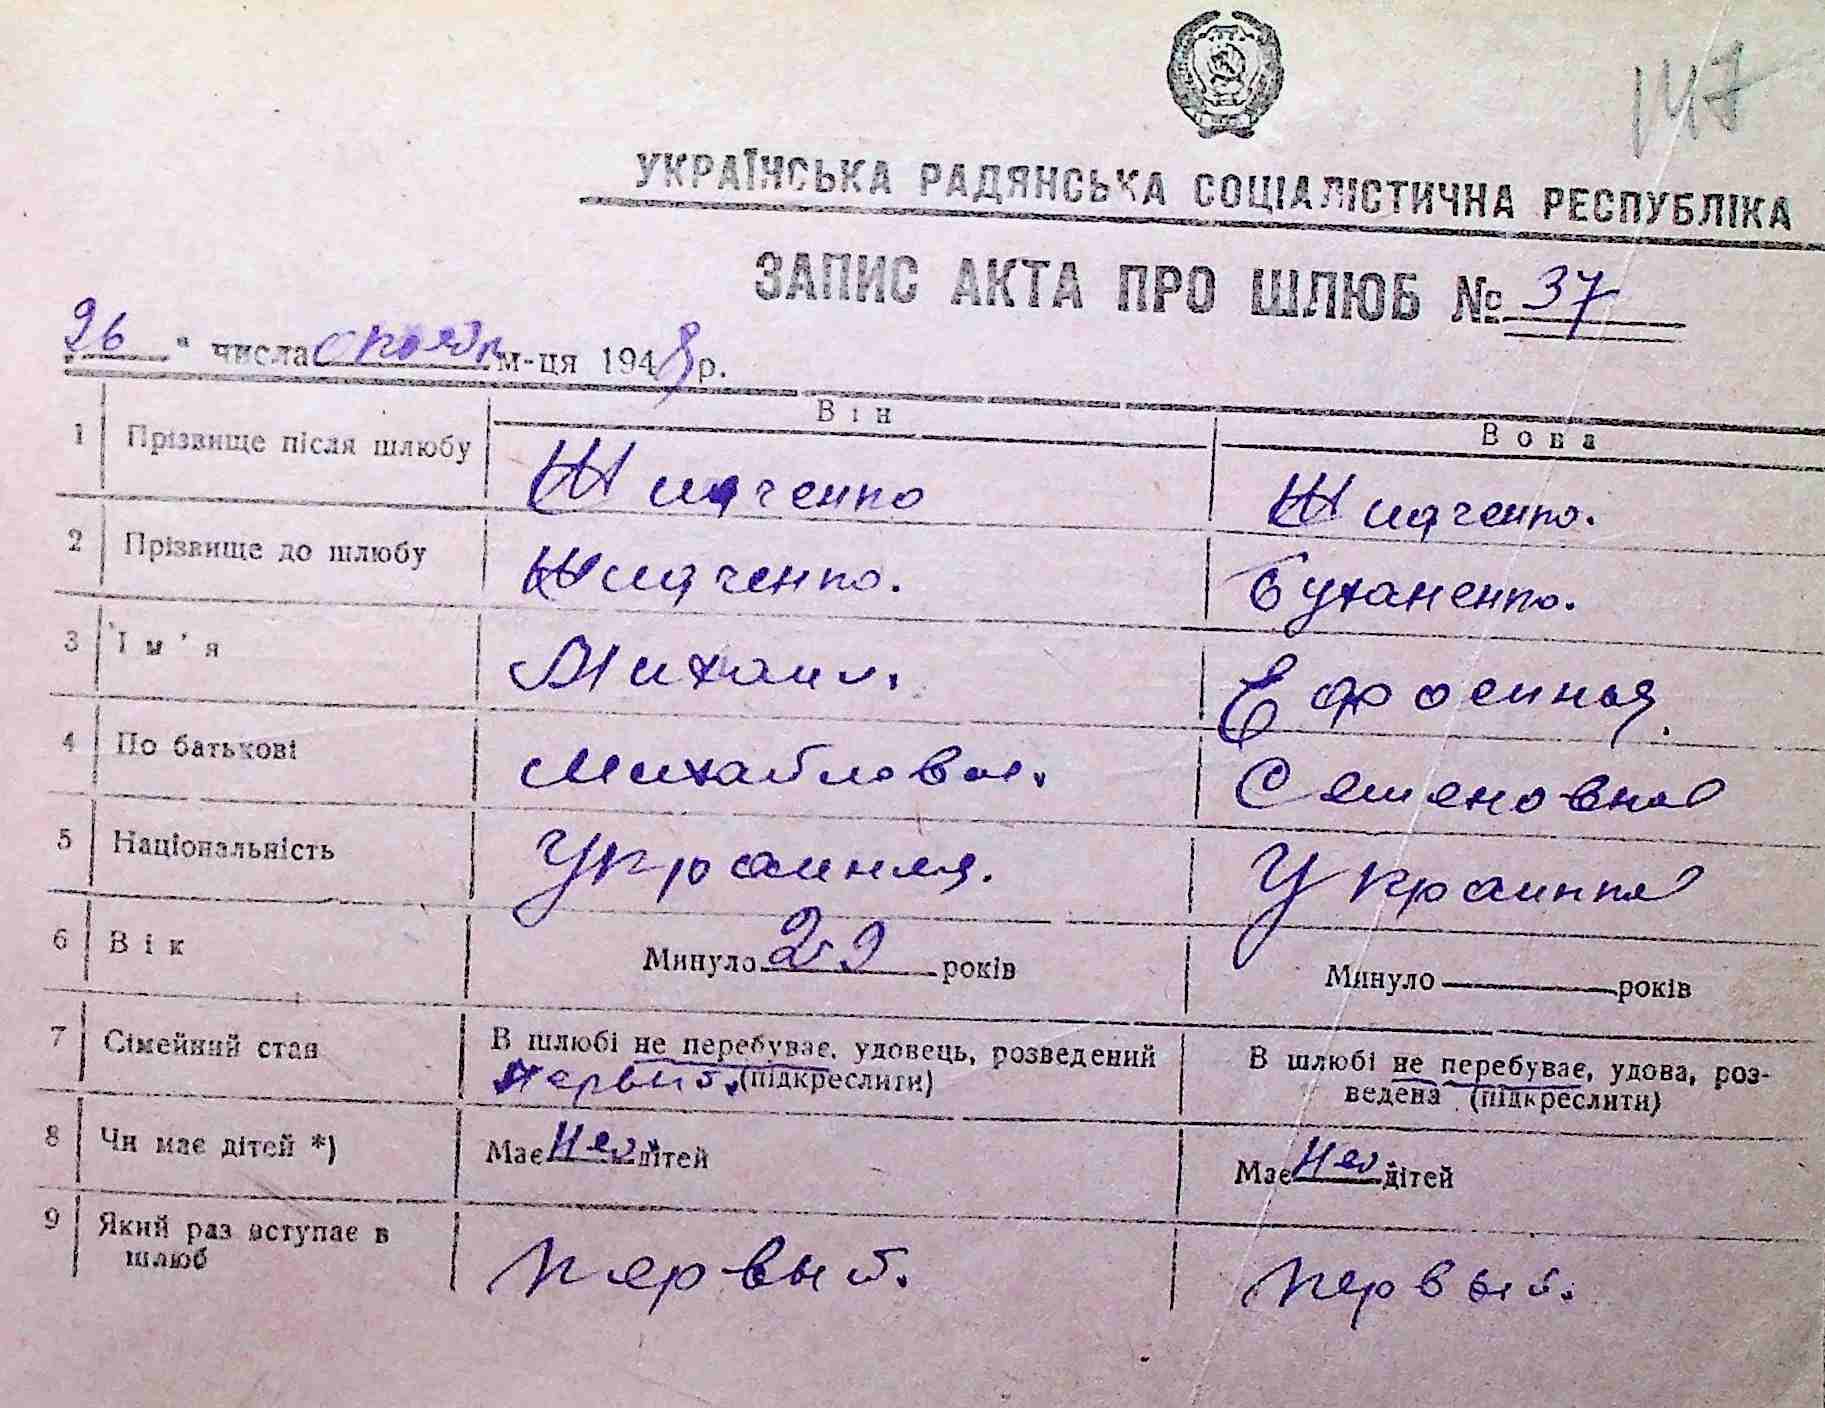 147
УКРАЇНСЬКА РАДЯНСЬКА СОЦІАЛІСТИЧНА РЕСПУБЛІКА
ЗАПИС АКТА ПРО ШЛЮБ № 37
„26“ числа м-ця 1948 р.
Він Вона
1 Прізвище після шлюбу
2 Прізвище до шлюбу Буханенко.
3 Ім'я Михаил. Ефросиния.
4 По батькові Михайлович. Семеновна
5 Національність Украинец. Украинка
6 Вік Минуло років Минуло років
7 Сімейний стан В шлюбі не перебуває, удовець, розведений В шлюбі не перебуває, удова, роз-
первый. (підкреслити) ведена (підкреслити)
8 Чи має дітей *) Має нет дітей Має нет дітей
9 Який раз вступає в первый. первый.
шлюб